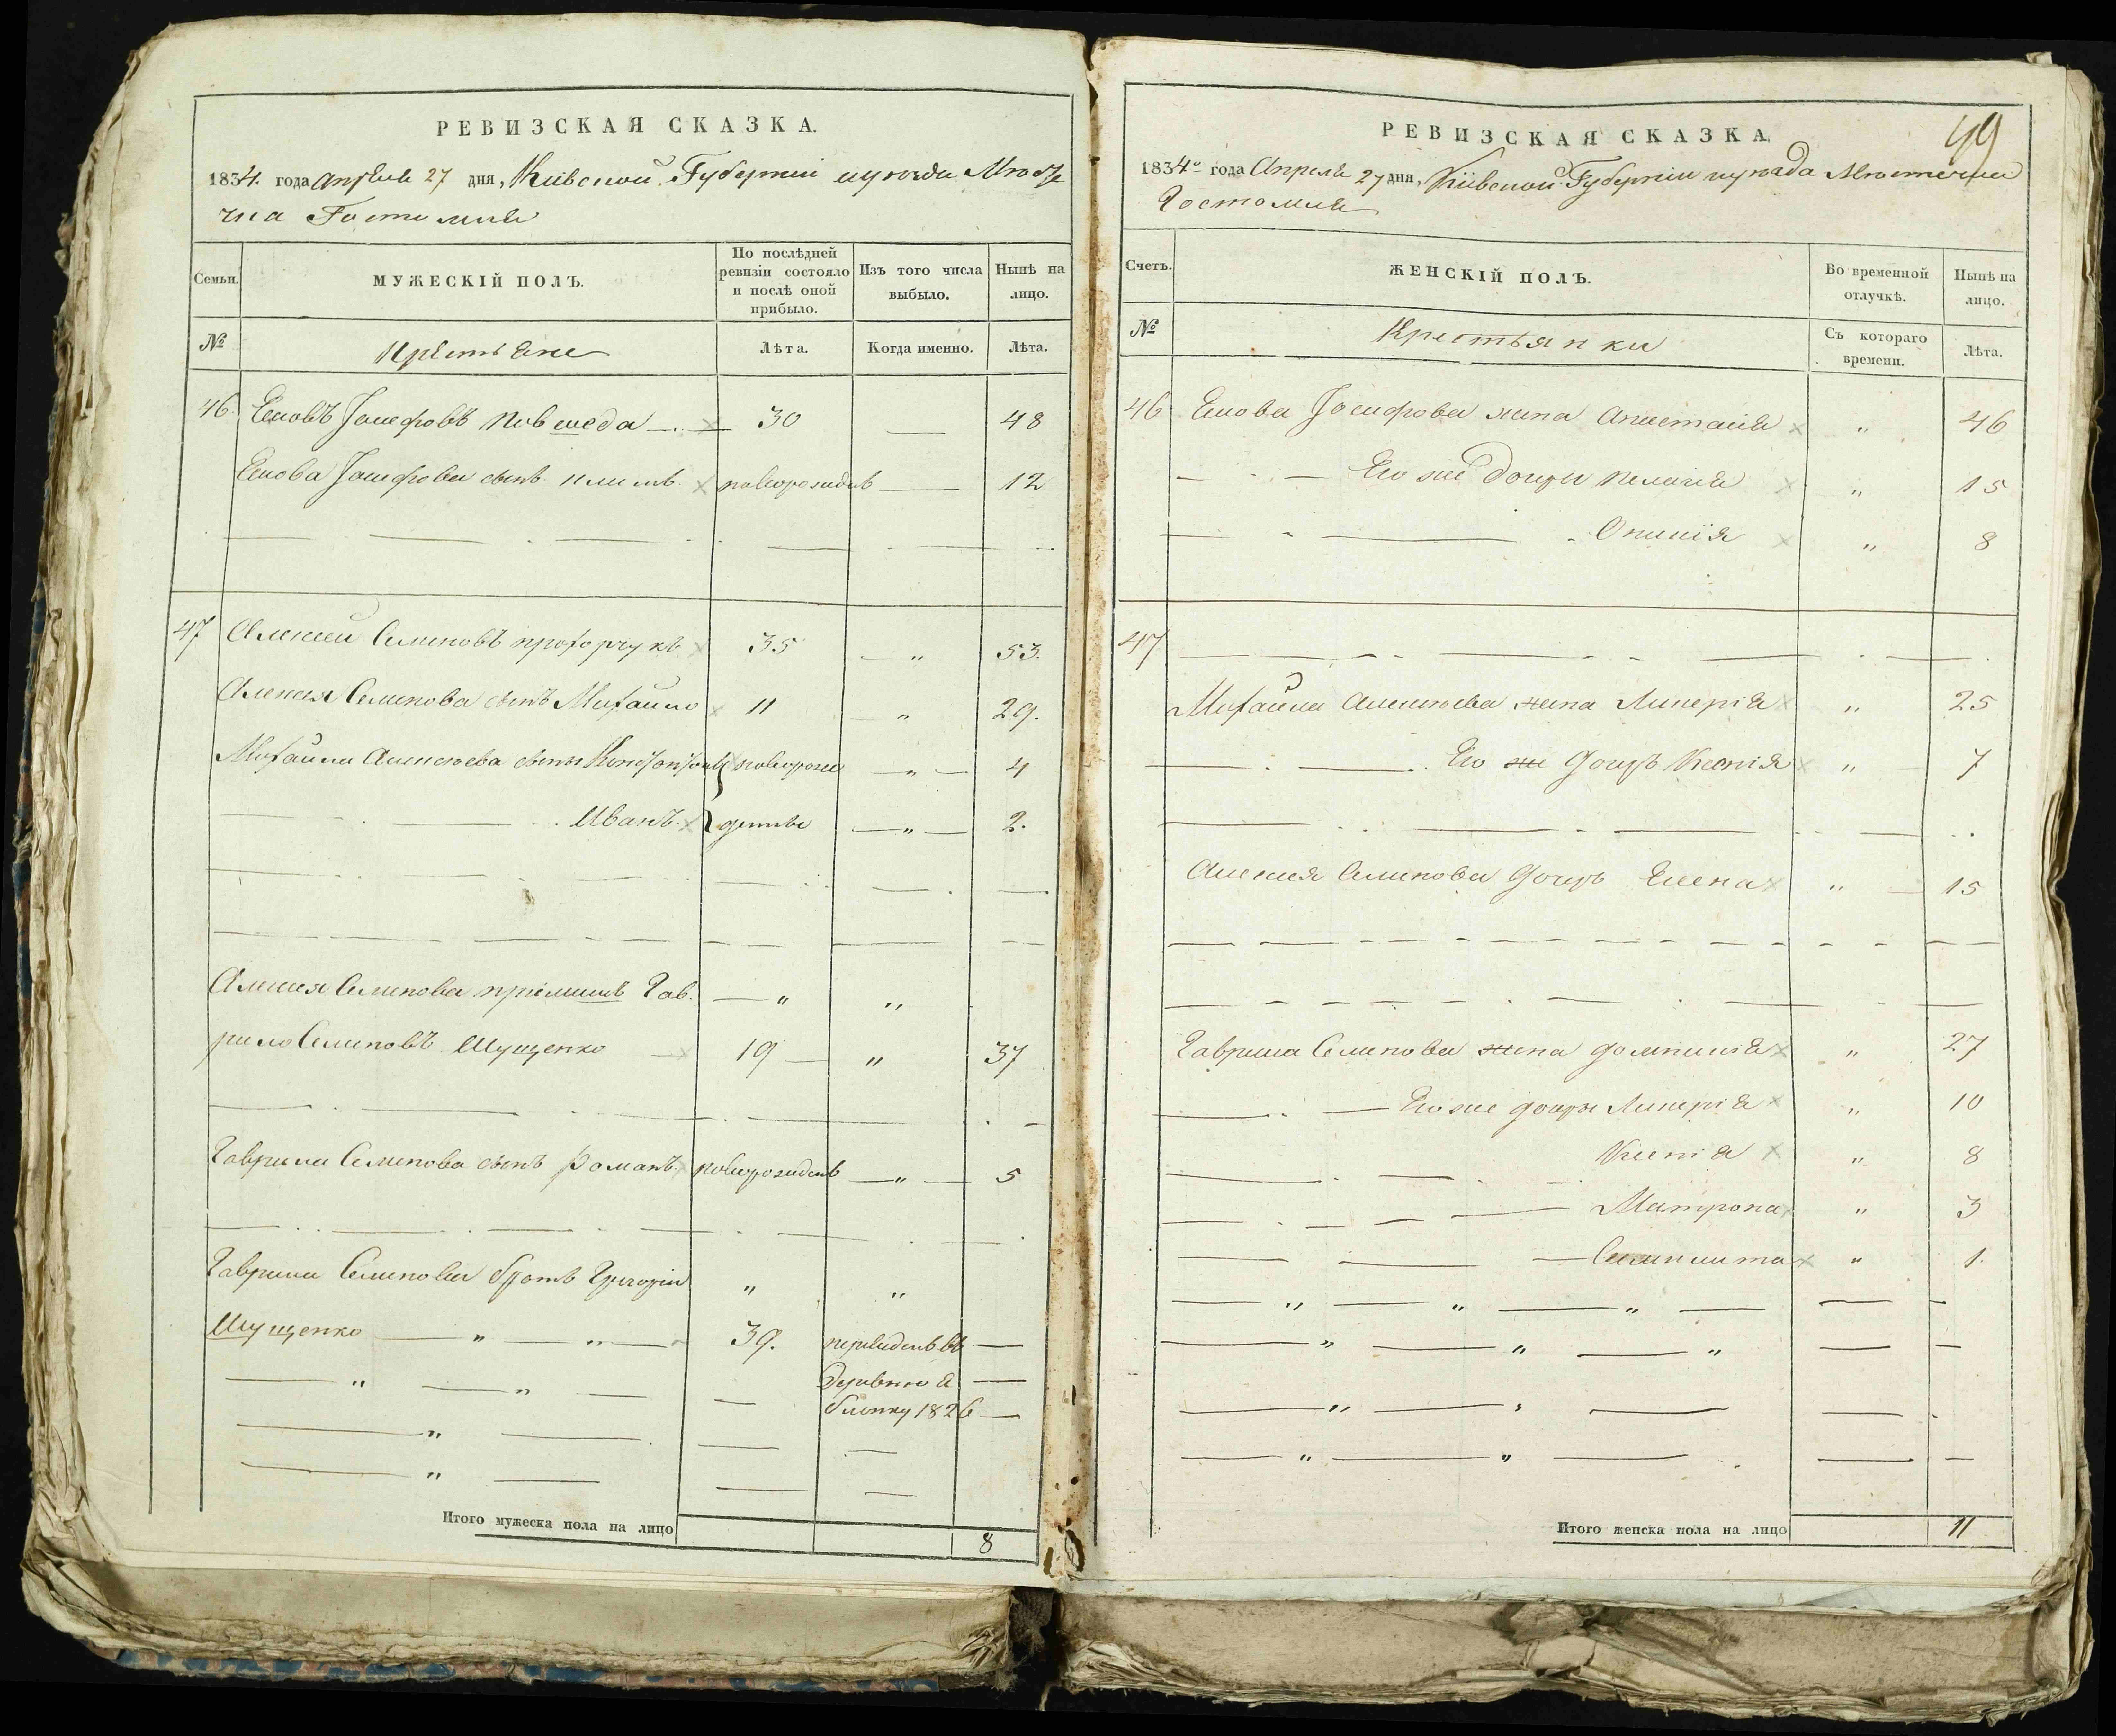 РЕВИЗСКАЯ СКАЗКА.
1834. года Апреля 27 дня, Киевской Губернии и уезда Месте
чка Гостомля
Семьи.
МУЖЕСКІЙ ПОЛЪ.
По послѣдней ревизіи состояло и послѣ оной прибыло.
Изъ того числа выбыло.
Нынѣ на лицо.
№
Крестьяне
Лѣта.
Когда именно.
Лѣта.
46. Іосифовъ 30 — 48
Іосифова сынъ Климъ новорожденъ — 12
47 Алексей Семеновъ прохорчукъ 35 — „ 53.
Алексея Семенова сынъ Михайло 11 — „ 29.
Михайла Алексеева сыны новорож — „ — 4
Иванъ денные — „ — 2.
Алексея Семенова Гав. — „ „
рило Семеновъ Шущенко — 19 — „ 37
Гаврила Семенова сынъ Романъ новорожденъ — „ — 5
Гаврила Семенова братъ Григорій „ „
Шущенко — „ — „ — 39. переведенъ въ —
деревню —
1826 —
Итого мужеска пола на лицо 8
99
РЕВИЗСКАЯ СКАЗКА.
1834го года Апреля 27 дня, Кіевской Губерніи и уезда Местечка
Гостомля
Счетъ.
ЖЕНСКІЙ ПОЛЪ.
Во временной отлучкѣ.
Нынѣ на лицо.
№
Крестьянки
Съ котораго времени.
Лѣта.
46 Іосифова жена Анастасия „ 46
Его же дочери Пелагия „ 15
„ 8
47
Михайлы Алексеева жена Ликерія „ 25
Его же дочерь Ксенія „ 7
Алексея Семенова дочерь Елена „ — 15
Гаврила Семенова жена „ 27
Его же дочери Ликерія „ 10
Ксенія „ 8
Матрона „ 3
„ 1.
Итого женска пола на лицо 11